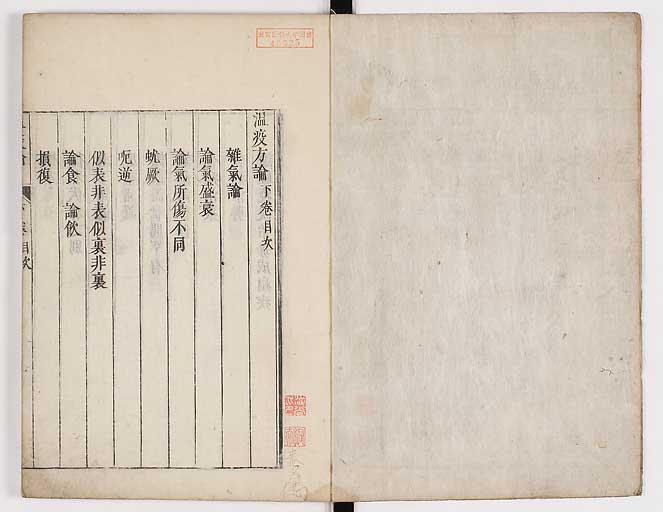 温疫方論下卷目次
雜氣論
論氣盛衰
論氣所傷不同
蚘厥
呃逆
似表非表似裏非裏
論食 論飲
損復
目次